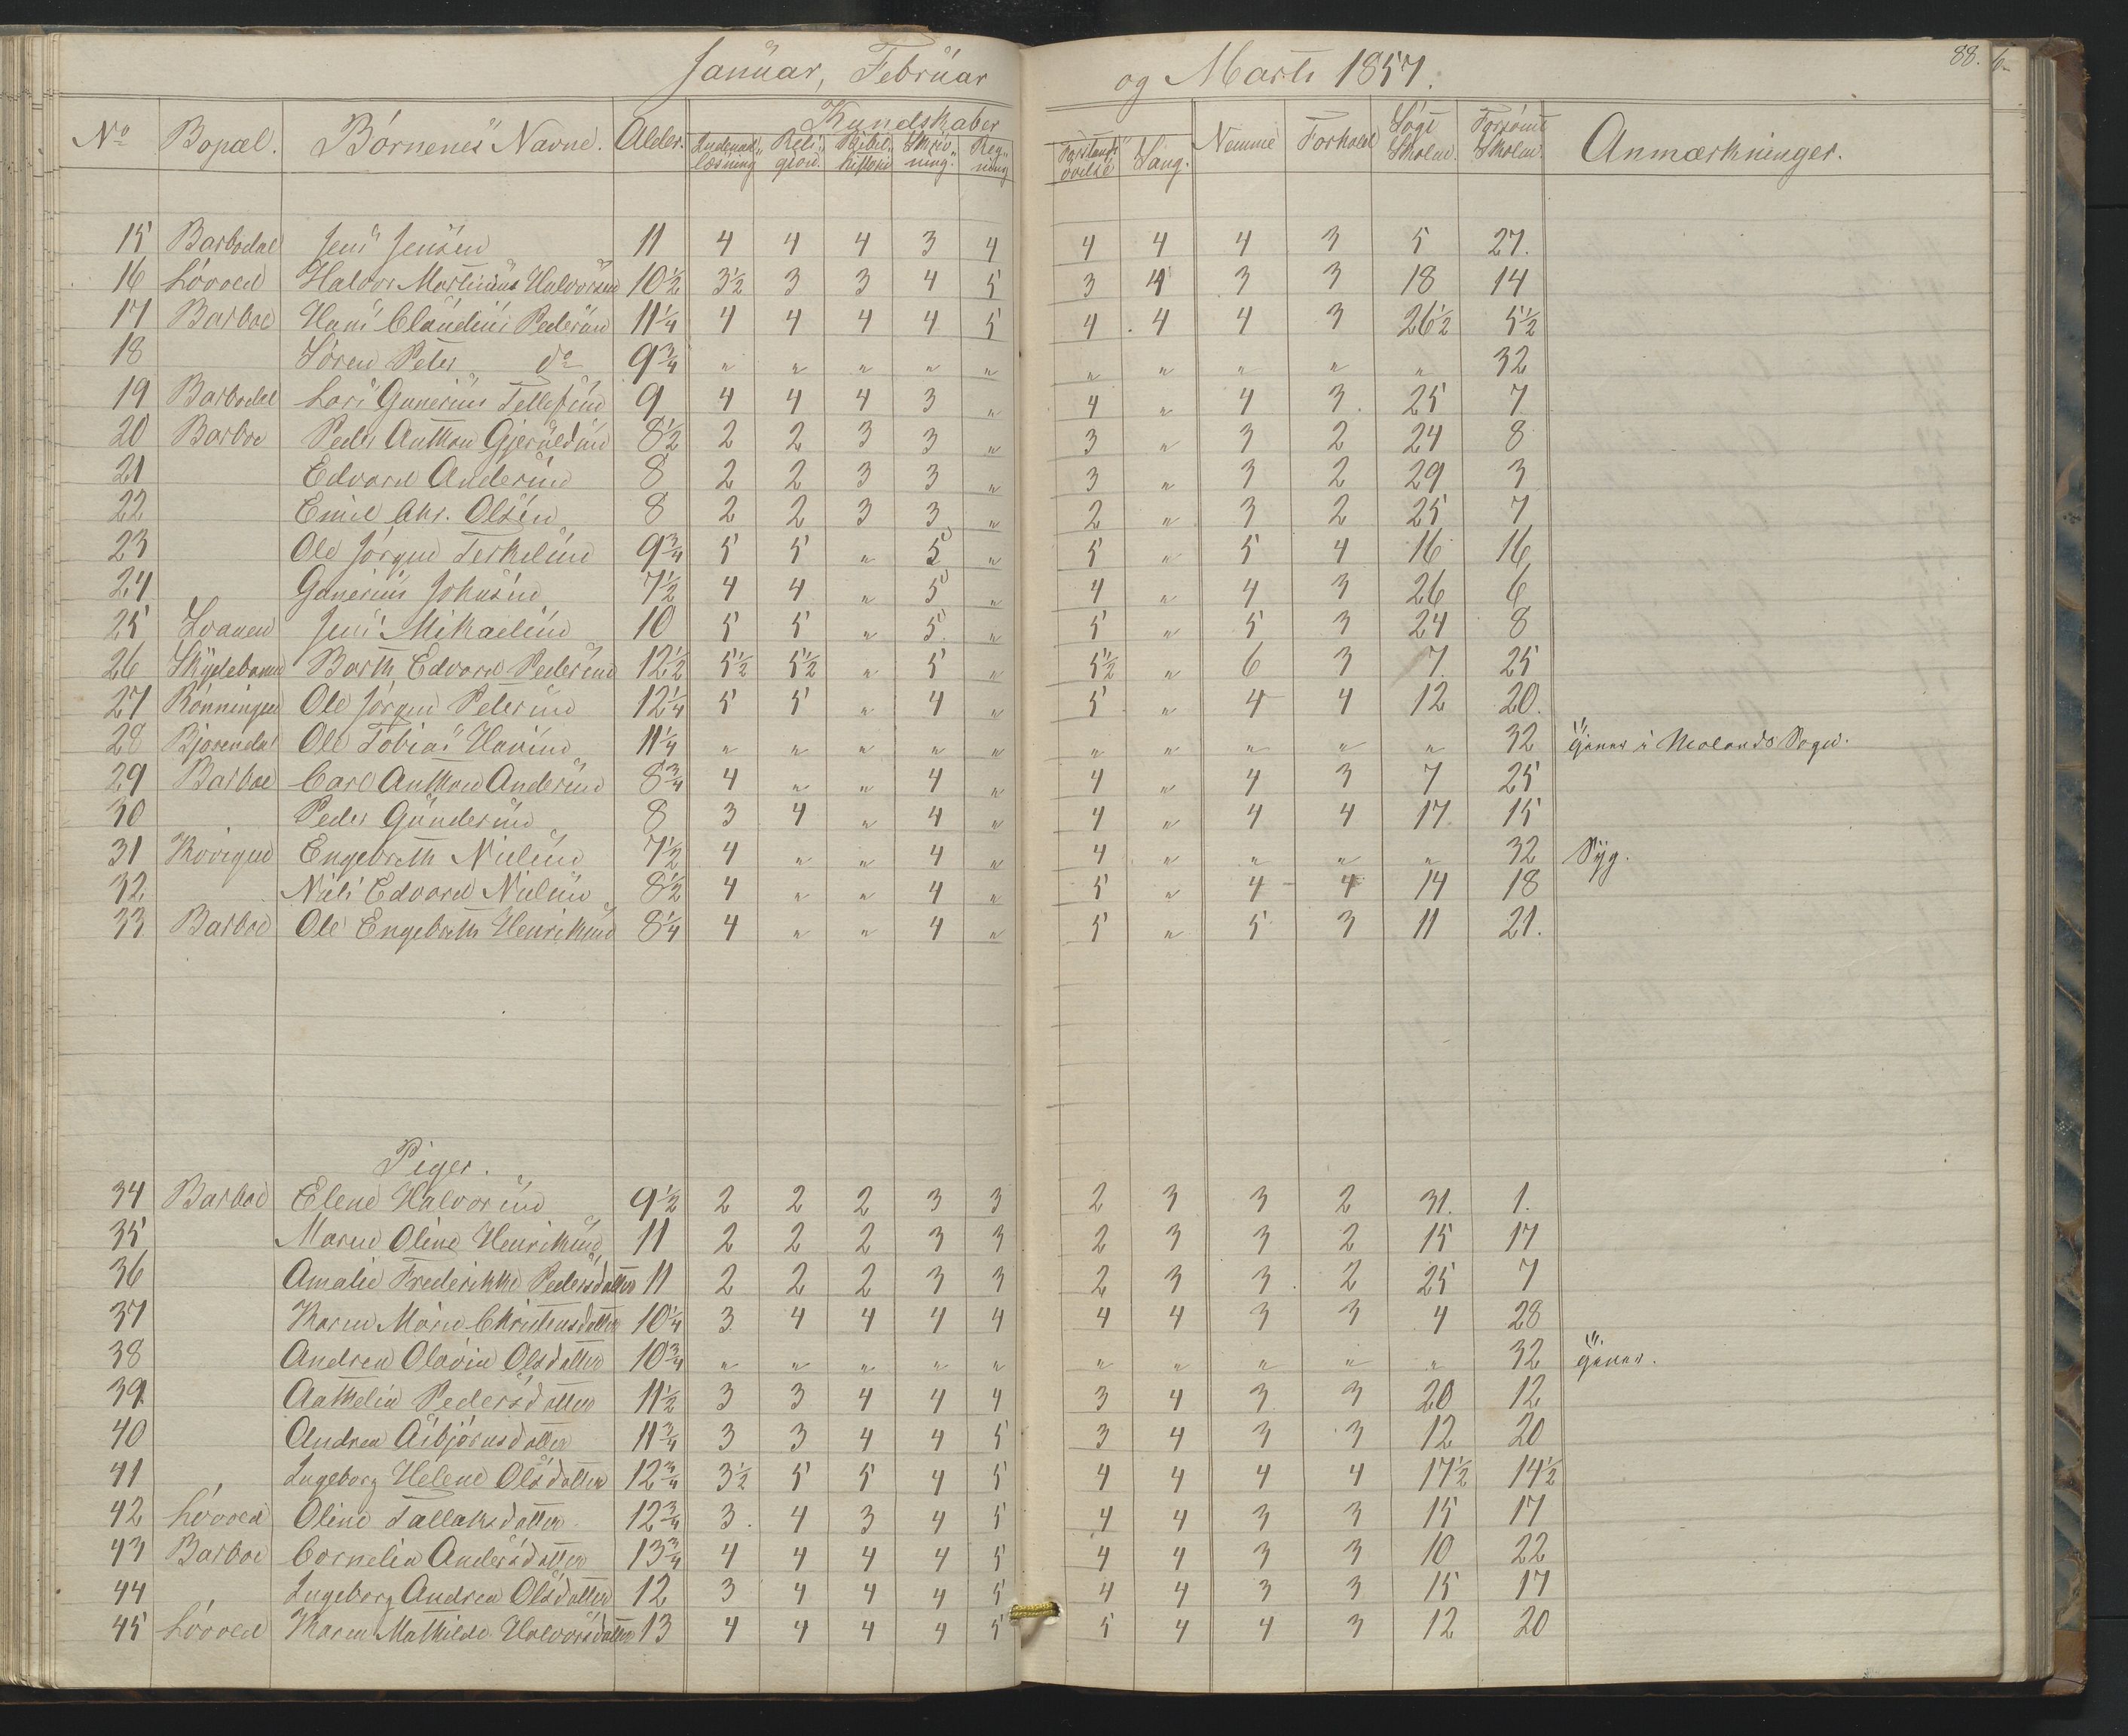 Januar, Februar og Marts 1857.
88.
No Bopæl. Børnenes Navne. Alder. Kundskaber Nemme Forhold Søgt Skolen. Forsømt Skolen. Anmærkninger.
Indenadlæsning Religion. Bibelhistorie Skrivning. Regning Forstandsøvelse Sang.
15 Barbodal Jens Jensen 11 4 4 4 3 4 4 4 4 3 5 27.
16 Løvold Halvor Martinius Halvorsen 10½ 3½ 3 3 4 5 3 4 3 3 18 14
17 Barboe Hans Claudius Pedersen 11¼ 4 4 4 4 5 4 4 4 3 26½ 5½
18 Søren Peter do 9¾ " " " " " " " " " " 32
19 Barbodal Lars Gunerius Tellefsen 9 4 4 4 3 " 4 " 4 3 25 7
20 Barboe Peder Anthon Gjeruldsen 8½ 2 2 3 3 " 3 " 3 2 24 8
21 Edvard Andersen 8 2 2 3 3 " 3 " 3 2 29 3
22 Emil Chr. Olsen 8 2 2 3 3 " 2 " 3 2 25 7
23 Ole Jørgen Terkelsen 9¾ 5 5 " 5 " 5 " 5 4 16 16
24 Gunerius Johnsen 7½ 4 4 " 5 " 4 " 4 3 26 6
25 Svanen Jens Mikaelsen 10 5 5 " 5 " 5 " 5 3 24 8
26 Skydebanen Barth. Edvard Pedersen 12½ 5½ 5½ " 5 " 5½ " 6 3 7 25
27 Rønningen Ole Jørgen Petersen 12¼ 5 5 " 4 " 5 " 4 4 12 20.
28 Bjorendal Ole Tobias Hansen 11¼ " " " " " " " " " " 32 tjener i Molands Sogn.
29 Barboe Carl Anthon Andersen 8¾ 4 " " 4 " 4 " 4 3 7 25
30 Peder Gundersen 8 3 4 " 4 " 4 " 4 4 17 15
31 Engebreth Nielsen 7½ 4 " " 4 " 4 " " " " 32 Syg.
32 Niels Edvard Nielsen 8½ 4 " " 4 " 5 " 4 4 14 18
33 Barboe Ole Engebreth Henriksen 8¼ 4 " " 4 " 5 " 5 3 11 21.
Piger.
34 Barboe Elene Halvorsen 9½ 2 2 2 3 3 2 3 3 2 31. 1.
35 Maren Oline Henriksen 11 2 2 2 3 3 2 3 3 2 15 17
36 Amalie Frederikke Pedersdatter 11 2 2 2 3 3 2 3 3 2 25 7
37 Karen Marie Christensdatter 10¼ 3 4 4 4 4 4 4 3 3 4 28
38 Andrea Olavia Olsdatter 10¾ " " " " " " " " " " 32 tjener.
39 Aathelia Pedersdatter 11½ 3 3 4 4 4 3 4 3 3 20 12
40 Andrea Asbjørnsdatter 11¾ 3 3 4 4 5 3 4 3 3 12 20
41 Ingeborg Helene Olsdatter 12¾ 3½ 5 5 4 5 4 4 4 4 17½ 14½
42 Løvold Oline Tallaksdatter 12¾ 3 4 3 4 5 4 4 3 3 15 17
43 Barboe Cornelia Andersdatter 13¾ 4 4 4 4 5 4 4 3 3 10 22
44 Ingeborg Andrea Olsdatter 12 3 4 4 4 5 4 4 3 3 15 17
45 Løvold Karen Mathilde Halvorsdatter 13 4 4 4 4 5 5 4 4 3 12 20